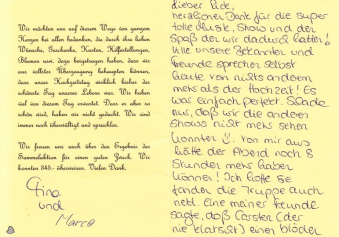 Wir möchten uns auf diesem Wege von ganzem
Herzen bei allen bedanken, die durch ihre lieben
Wünsche, Geschenke, Karten, Hilfestellungen,
Blumen usw. dazu beigetragen haben, dass wir
aus vollster Überzeugung behaupten können,
dass unser Hochzeitstag wirklich bisher der
schönste Tag unseres Lebens war. Wir haben
viel von diesem Tag erwartet. Dass er aber so
schön wird, haben wir nicht gedacht. Wir sind
immer noch überwältigt und sprachlos.
Wir freuen uns auch über das Ergebnis der
Sammelaktion für einen guten Zweck. Wir
konnten 345,- überweisen. Vielen Dank.
und
Marco
Lieber
herzlichen Dank für die super
tolle Musik, Show und den
Spaß den wir dadurch hatten!
Alle unsere Bekannten und
Freunde sprechen selbst
heute von nichts anderem
mehr als der Hochzeit! Es
war einfach perfekt. Schade
nur, daß wir die anderen
Shows nicht mehr sehen
konnten. Von mir aus
hätte der Abend noch 8
Stunden mehr haben
können! Ich hoffe Sie
fanden die Truppe auch
nett. Eine meiner Freunde
sagte, daß Carsten (der
nie klatscht) einen blöden